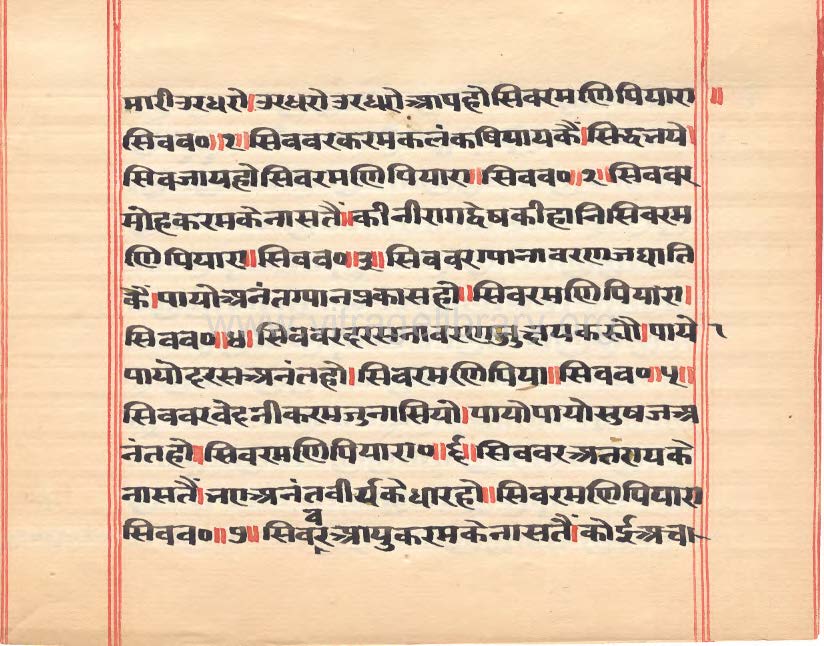 मारी उरधरो।उरधरो उरधरो आपहो सिवरमणिपियारा॥
सिवव०॥१॥सिववरकरमकलंकषिपायकैं।सिद्धनये।
सिवजायहो सिवरमणिपियारा॥सिवव०॥२॥सिववर
मोंहकरमकेनासतैं॥कीनीरागद्वेषकीहानिसिवरम
णिपियारा॥सिवव०॥३॥सिववरग्पानावरणजघाति
कैं।पायोअनंतग्पानप्रकासहो॥सिवरमणिपियारा।
सिवव०॥४॥सिववरदरसनावरण षयकस्यौ।पाये१
पायोदरसअनंतहो।सिवरमणिपिया॥सिवव०॥५॥
सिववरवेदनीकरमजुनासियो।पायोपायोसुषजअ
नंतहो॥सिवरमणिपियारा०॥६॥सिववरअतरायके
नासतैं।नएअनंतवीर्यकेधारहो॥सिवरमणिपियारा
सिवव०॥७॥सिववरआयुकरमकेनासतैं।कोईअचा
www.vitragelibrary.org